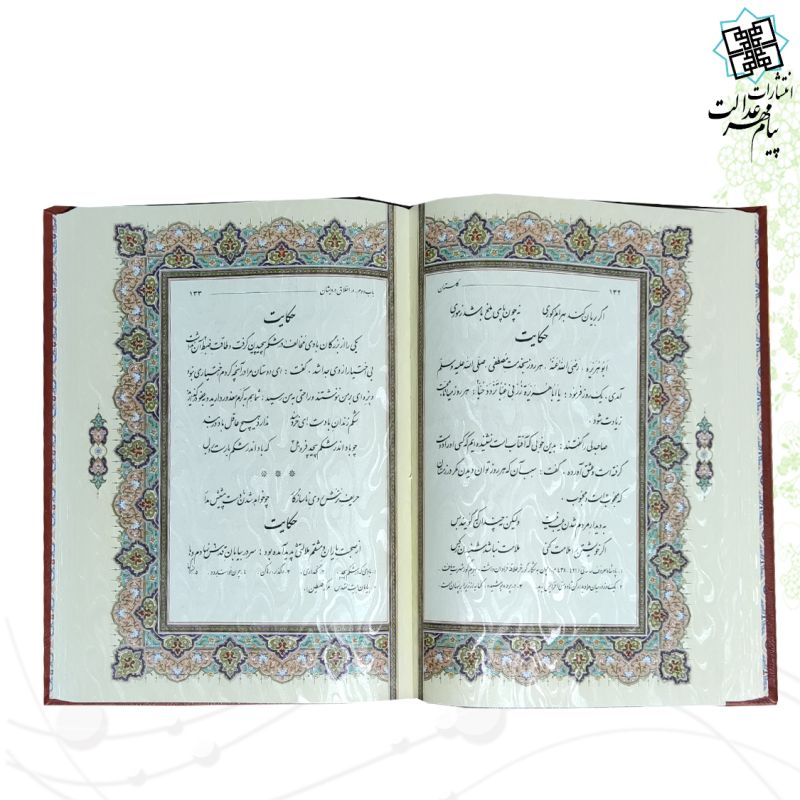 انتشارات
پیام مهر عدالت
گلستان ۱۳۲
اگر بریان کند بهرام گوری نه چون پای ملخ باشد ز موری
حکایت
ابوهریره، رضی الله عنه، هر روز بخدمت مصطفی، صلی الله علیه وسلم
آمدی. یک روز فرمود: یا اباهریرة زرنی غباً تزدد حباً؛ هر روز میا تا محبت
زیادت شود.
صاحبدلی را گفتند: بدین خوبی که آفتاب است نشنیده ایم که کسی او را دوست
گرفته است و عشق آورده، گفت: سبب آن که هر روز توان دیدن مگر در زمستان
که محجوبست و محبوب.
به دیدار مردم شدن عیب نیست ولیکن نه چندان که گویند بس
اگر خویشتن را ملامت کنی ملامت نباید شنیدن ز کس
باب دوم، در اخلاق درویشان ۱۳۳
حکایت
یکی را از بزرگان بادی مخالف در شکم پیچیدن گرفت و طاقت ضبط آن نداشت
بی اختیار از وی جدا شد. گفت: ای دوستان مرا در آنچه کردم اختیاری نبود
و بزه ای بر من ننوشتند و راحتی به من رسید؛ شما هم به کرم معذور دارید
شکم زندان بادست ای خردمند ندارد هیچ عاقل باد در بند
چو باد اندر شکم پیچد فرو هل که باد اندر شکم بارست بر دل
* * *
حریف ترشروی ناسازگار چو خواهد شدن دست پیشش مدار
حکایت
از صحبت یاران دمشقم ملالتی پدید آمده بود؛ سر در بیابان قدس نهادم و با